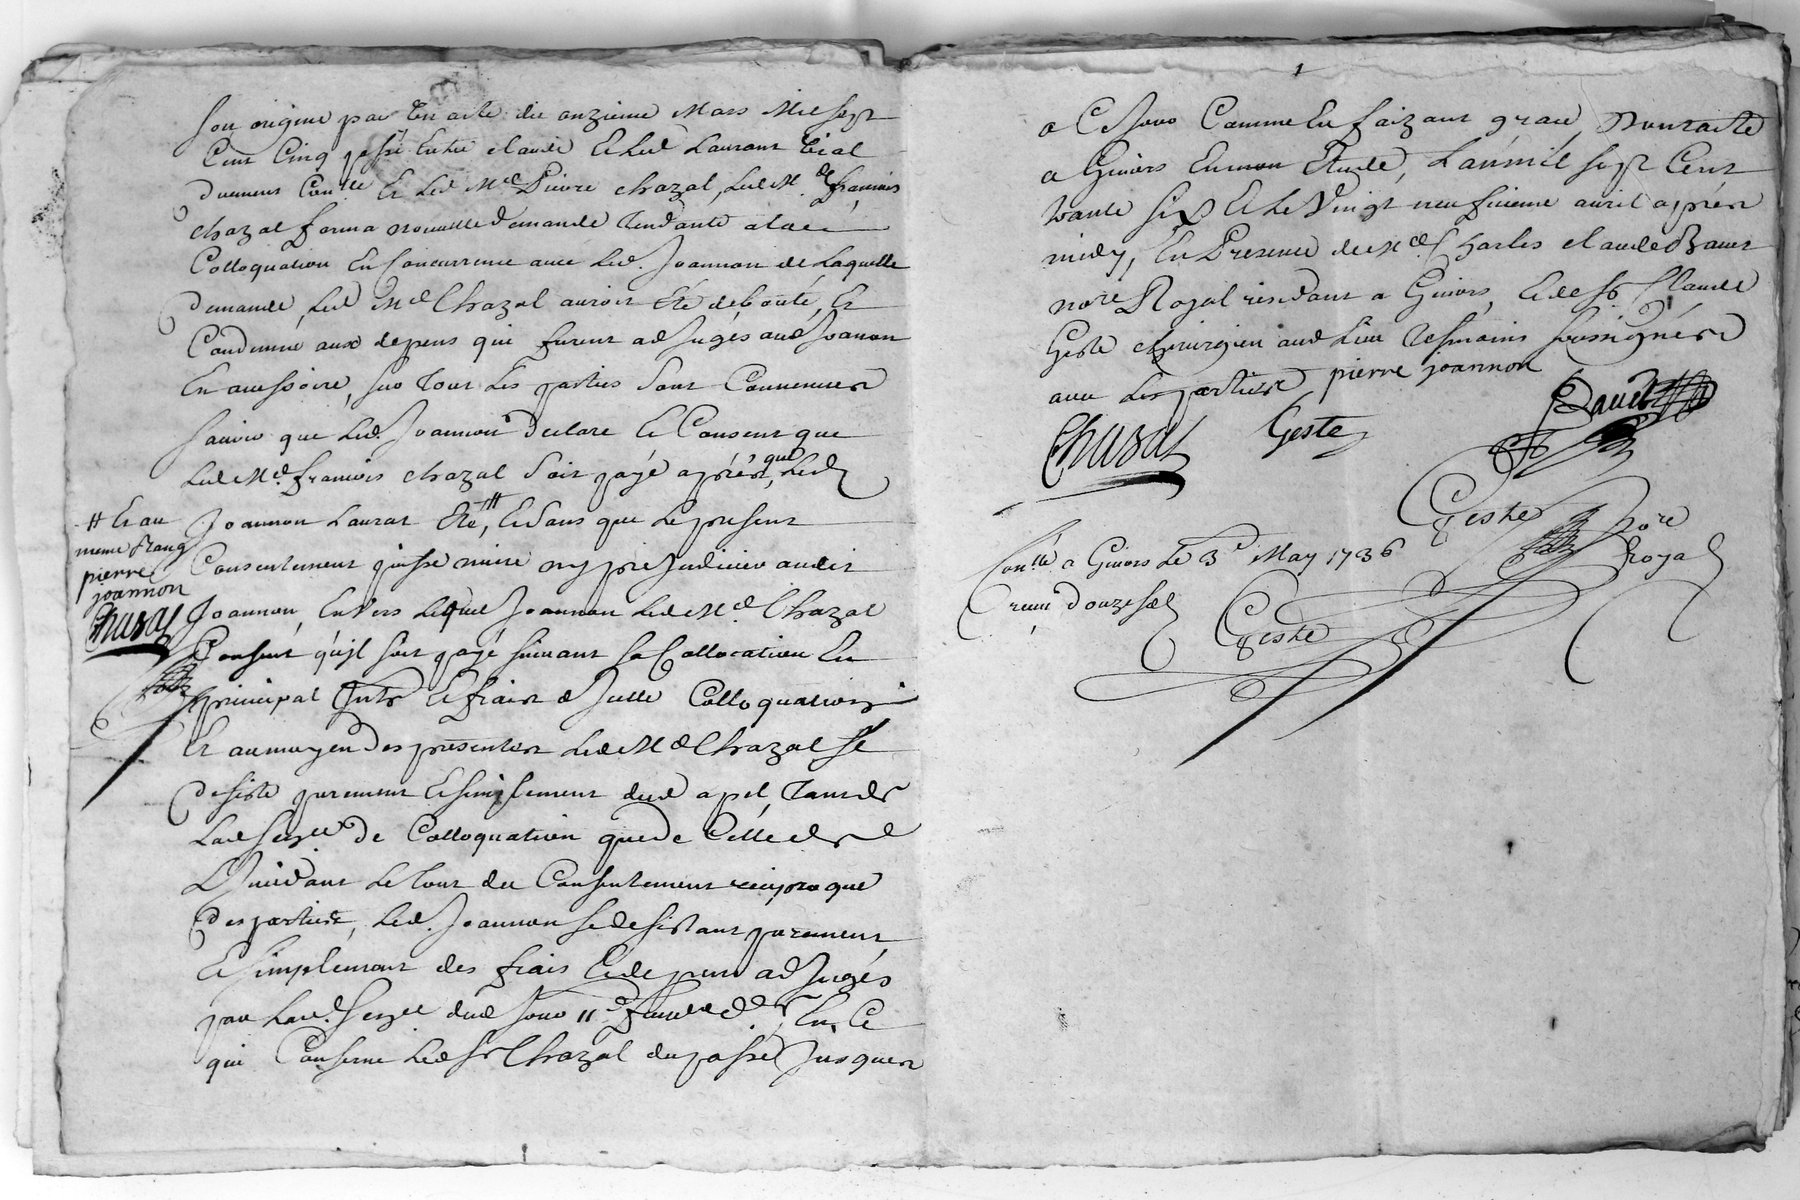 son origine par un acte du onzieme Mars Mil sept
Cent Cinq passé Entre claude Et Led Laurant
duement Con.lle Et Led Me Pierre chazal, Led M.e francois
chazal forma nouvelle demande Tendante a la
Colloquation En Concurrence avec Led. Joannon de Laquelle
demande, Led Me Chazal auroit Eté debouté, Et
Condemné aux depens qui furent adjugés aud Joanon
En accessoire, sur Tout Les parties sont Convenues
scavoir que Led. Joannon declare Et Consent que
Led Me. francois chazal soit payé aprés que Led
Joannon Laurat Eté, Et sans que Le present
Consentement puisse nuire ny prejudicier audit
Joannon, Envers Lequel Joannon Led Me. Chazal
Consent qu'il soit payé suivant sa Collocation En
principal Ints Et frais de Juste Colloquation
Et au moyen des presentes Led Me Chazal se
desiste purement Et simplement dud apel, Tant de
Lad sence de Colloquation que de Celle
Le Tout du Consentement reciproque
des parties, Led. Joannon se desistant purement
Et simplement des frais Et depens adjugés
par Lad. sence dud Jour 11e En Ce
qui Conserne Led sr Chazal du passé Jusques
// Et au
meme Rang
pierre
joannon
Chazal
a Ce Jour Comme En faizant grace, Dont acte
a Givors En mon Etude, L'an mil sept Cent
trante six Et Le Vingt neufvieme avril aprés
midy, En Presence de Me. Charles claude Bauet
nore Royal residant a Givors, Et de sr Claude
Geste chirurgien aud Lieu Tesmoins soussignés
avec Les parties pierre joannon
Chazal Geste Bauet
Geste nore Royal
Con.llé a Givors Le 3e May 1736
receu douze sols
Geste